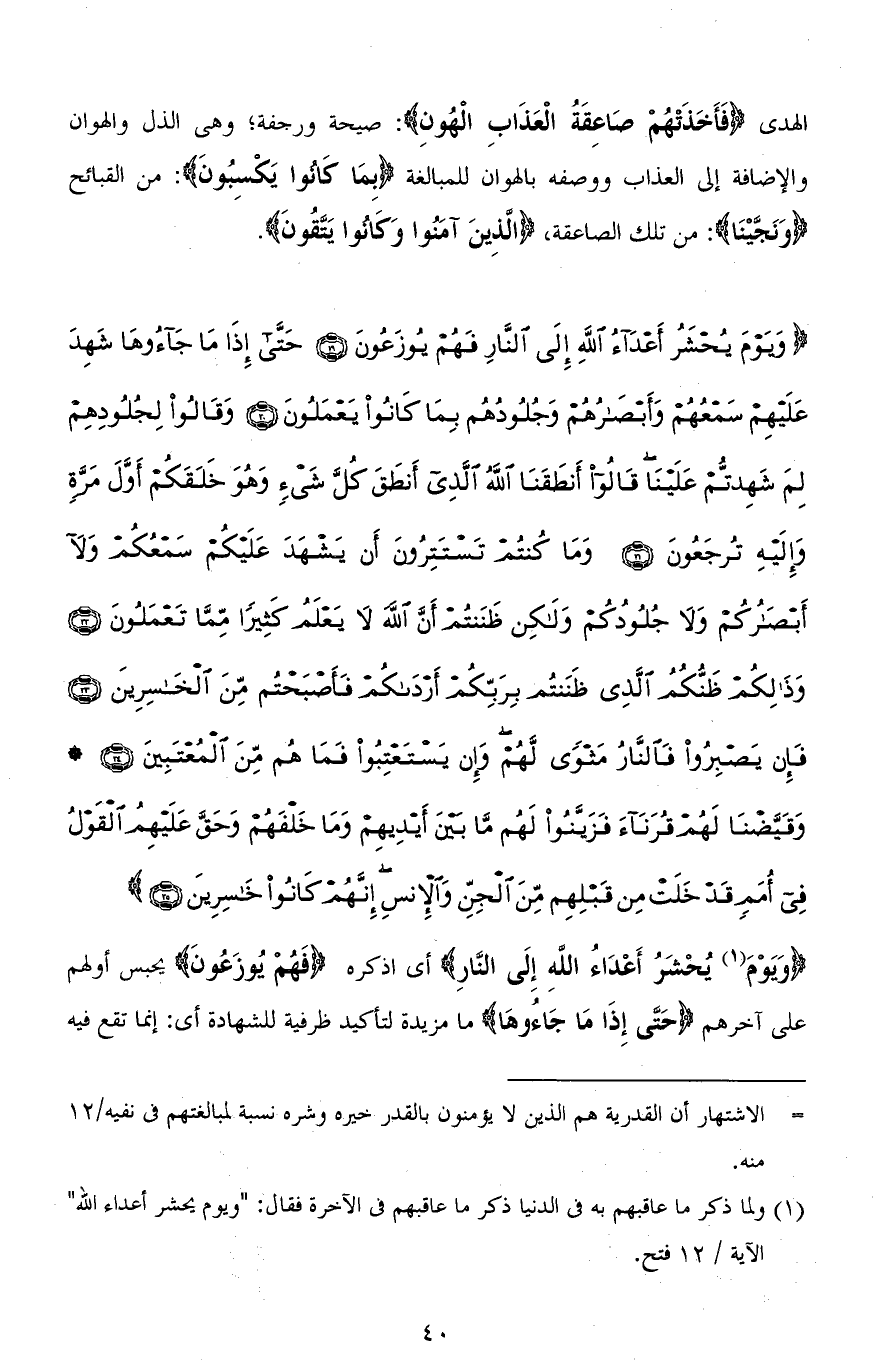 الهدى ﴿فَأَخَذَتْهُمْ صَاعِقَةُ الْعَذَابِ الْهُونِ﴾: صيحة ورجفة؛ وهى الذل والهوان
والإضافة إلى العذاب ووصفه بالهوان للمبالغة ﴿بِمَا كَانُوا يَكْسِبُونَ﴾: من القبائح
﴿وَنَجَّيْنَا﴾: من تلك الصاعقة، ﴿الَّذِينَ آمَنُوا وَكَانُوا يَتَّقُونَ﴾.
﴿ وَيَوْمَ يُحْشَرُ أَعْدَآءُ ٱللَّهِ إِلَى ٱلنَّارِ فَهُمْ يُوزَعُونَ ١٩ حَتَّىٰٓ إِذَا مَا جَآءُوهَا شَهِدَ
عَلَيْهِمْ سَمْعُهُمْ وَأَبْصَٰرُهُمْ وَجُلُودُهُم بِمَا كَانُوا۟ يَعْمَلُونَ ٢٠ وَقَالُوا۟ لِجُلُودِهِمْ
لِمَ شَهِدتُّمْ عَلَيْنَا ۖ قَالُوٓا۟ أَنطَقَنَا ٱللَّهُ ٱلَّذِىٓ أَنطَقَ كُلَّ شَىْءٍ وَهُوَ خَلَقَكُمْ أَوَّلَ مَرَّةٍ
وَإِلَيْهِ تُرْجَعُونَ ٢١ وَمَا كُنتُمْ تَسْتَتِرُونَ أَن يَشْهَدَ عَلَيْكُمْ سَمْعُكُمْ وَلَآ
أَبْصَٰرُكُمْ وَلَا جُلُودُكُمْ وَلَٰكِن ظَنَنتُمْ أَنَّ ٱللَّهَ لَا يَعْلَمُ كَثِيرًا مِّمَّا تَعْمَلُونَ ٢٢
وَذَٰلِكُمْ ظَنُّكُمُ ٱلَّذِى ظَنَنتُم بِرَبِّكُمْ أَرْدَىٰكُمْ فَأَصْبَحْتُم مِّنَ ٱلْخَٰسِرِينَ ٢٣
فَإِن يَصْبِرُوا۟ فَٱلنَّارُ مَثْوًى لَّهُمْ ۖ وَإِن يَسْتَعْتِبُوا۟ فَمَا هُم مِّنَ ٱلْمُعْتَبِينَ ٢٤ *
وَقَيَّضْنَا لَهُمْ قُرَنَآءَ فَزَيَّنُوا۟ لَهُم مَّا بَيْنَ أَيْدِيهِمْ وَمَا خَلْفَهُمْ وَحَقَّ عَلَيْهِمُ ٱلْقَوْلُ
فِىٓ أُمَمٍ قَدْ خَلَتْ مِن قَبْلِهِم مِّنَ ٱلْجِنِّ وَٱلْإِنسِ ۖ إِنَّهُمْ كَانُوا۟ خَٰسِرِينَ ٢٥ ﴾
﴿وَيَوْمَ(١) يُحْشَرُ أَعْدَاءُ اللَّهِ إِلَى النَّارِ﴾ أى اذكره ﴿فَهُمْ يُوزَعُونَ﴾ يحبس أولهم
على آخرهم ﴿حَتَّى إِذَا مَا جَاءُوهَا﴾ ما مزيدة لتأكيد ظرفية للشهادة أى: إنما تقع فيه
= الاشتهار أن القدرية هم الذين لا يؤمنون بالقدر خيره وشره نسبة لمبالغتهم فى نفيه/١٢
منه.
(١) ولما ذكر ما عاقبهم به فى الدنيا ذكر ما عاقبهم فى الآخرة فقال: "ويوم يحشر أعداء الله"
الآية / ١٢ فتح.
٤٠